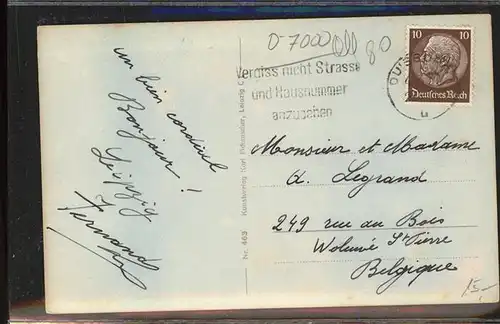 D-7000
80
Vergiss nicht Strasse
und Hausnummer
anzugeben
10 10
Deutsches Reich
un bien cordial
Bonjour!
Leipzig
Fernand
Nr. 463 Kunstverlag Leipzig
Monsieur et Madame
A. Legrand
249 rue du Bois
Woluwé St Pierre
Belgique
15,-